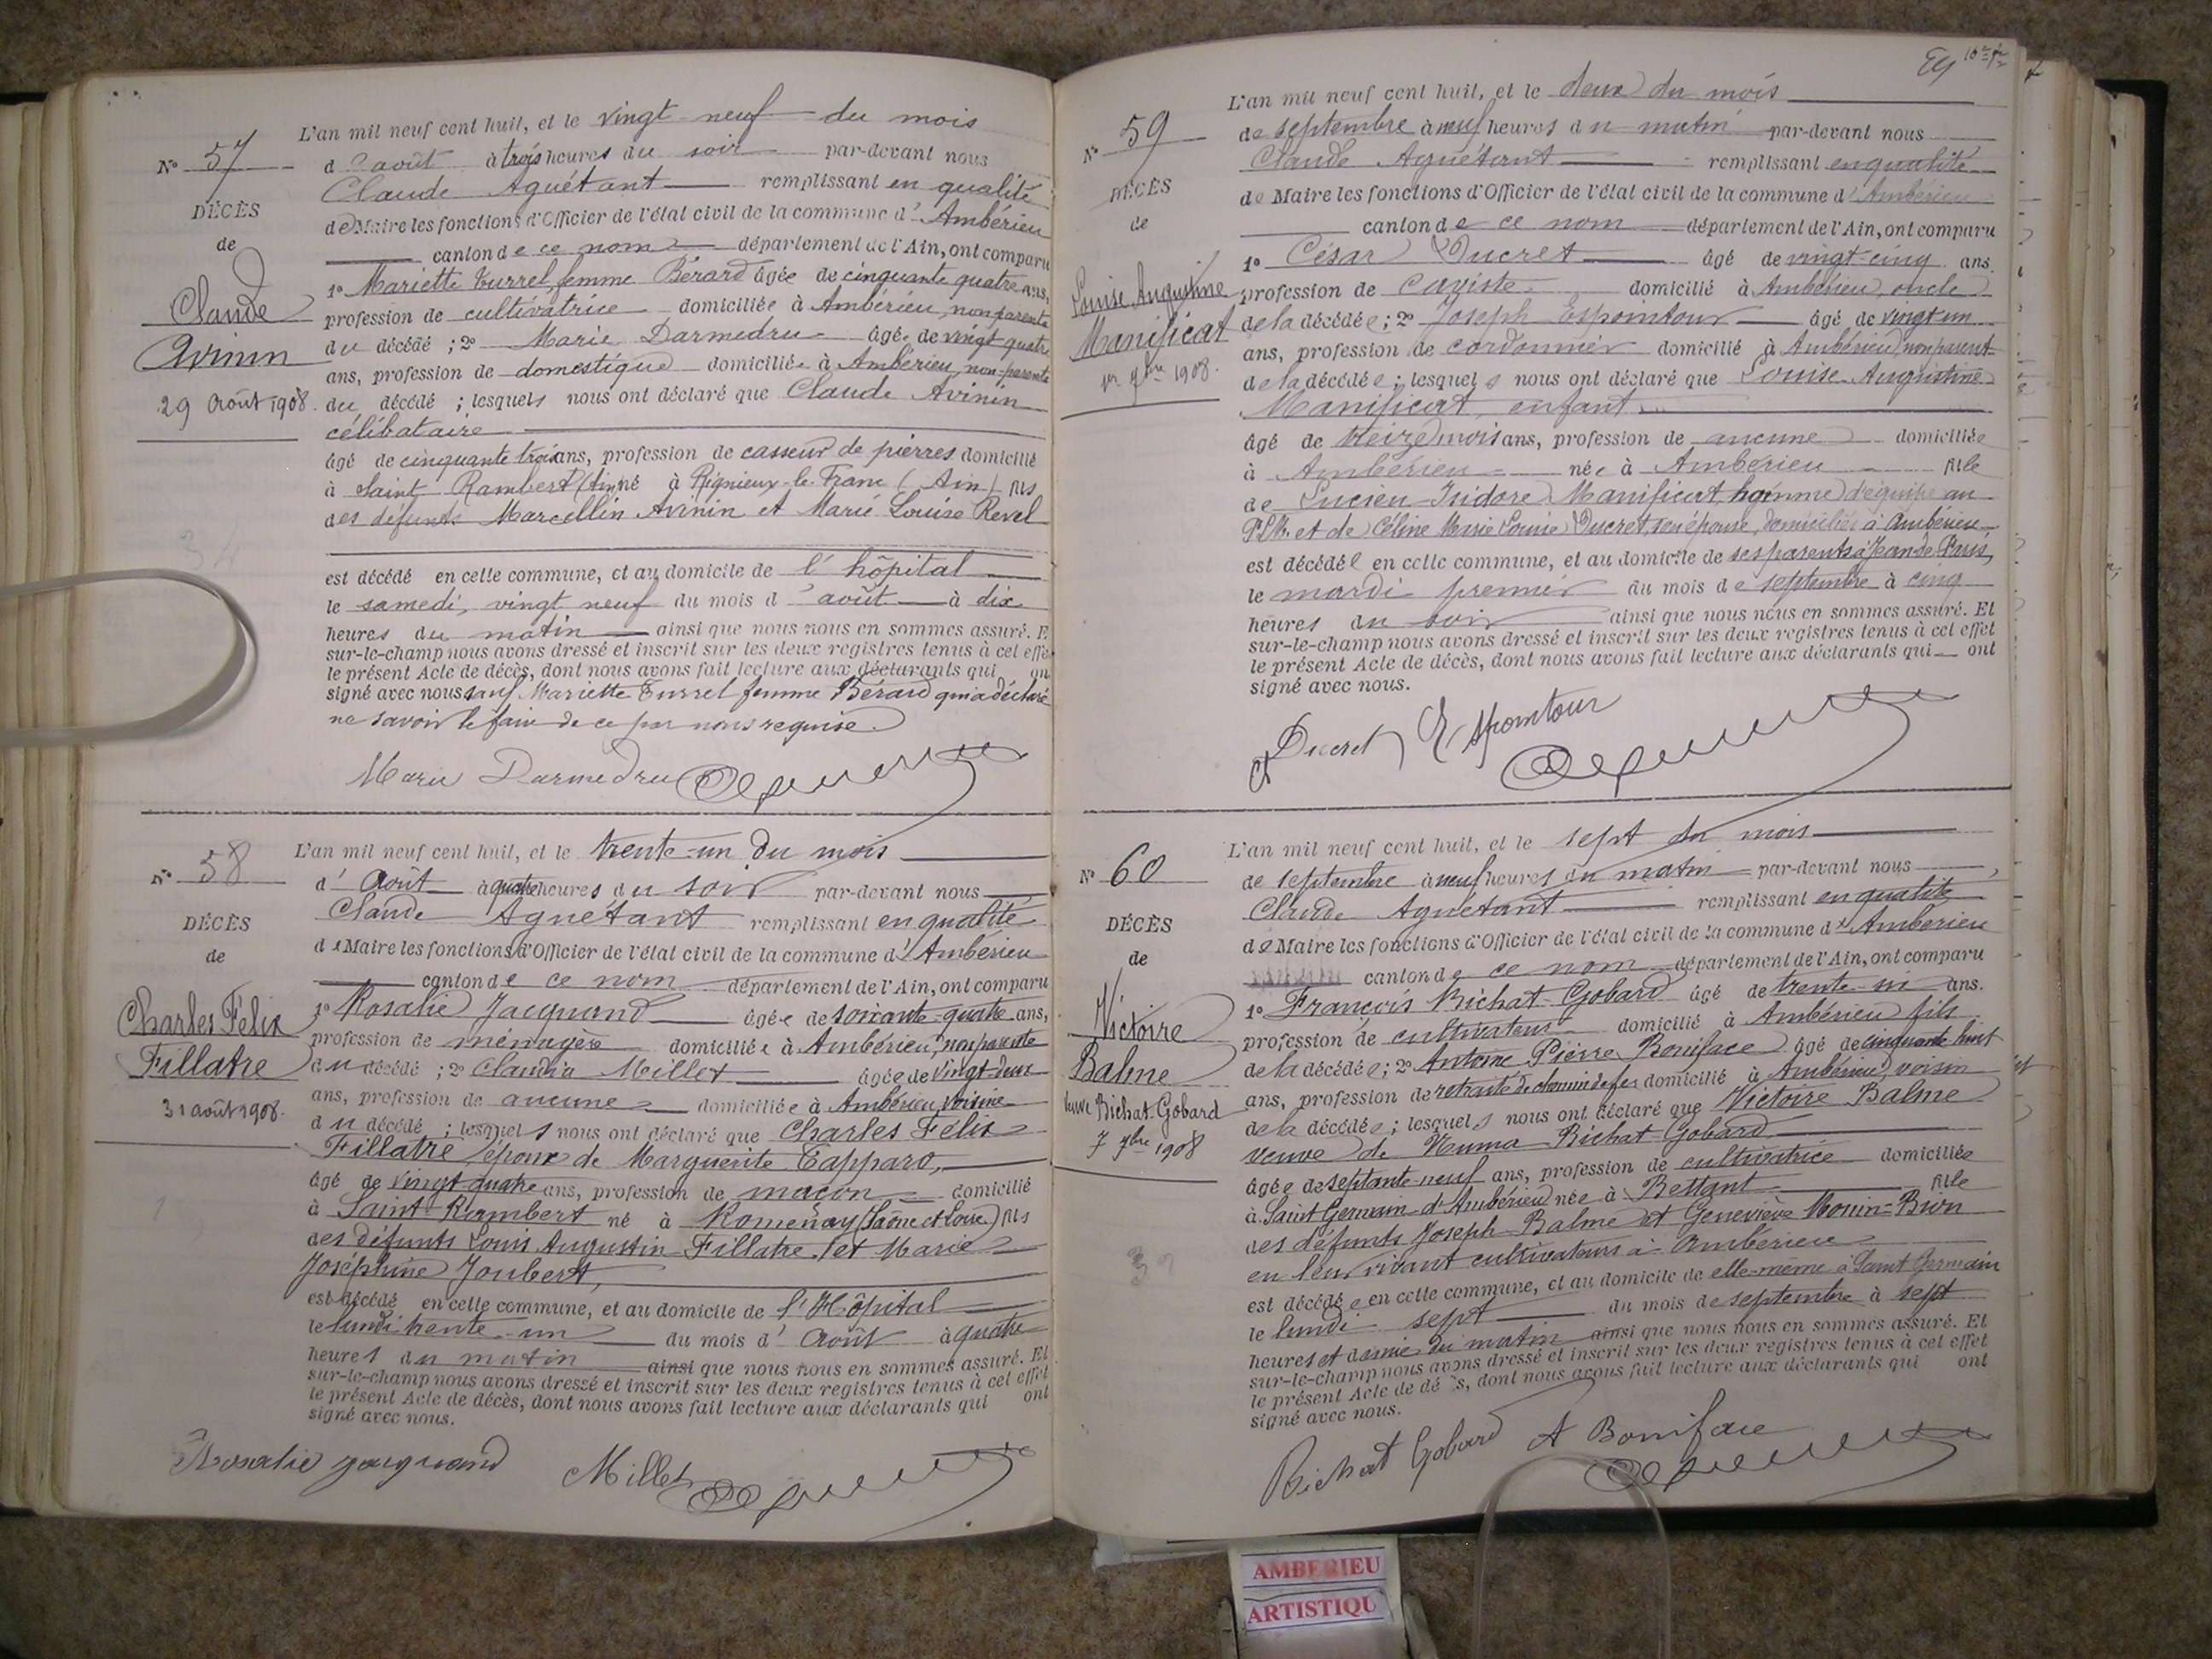 L'an mil neuf cent huit, et le vingt neuf du mois
N° 57
d'août à trois heures du soir par-devant nous
Claude Aguétant remplissant en qualité
DÉCÈS
de Maire les fonctions d'Officier de l'état civil de la commune d'Ambérieu
de
canton de ce nom département de l'Ain, ont comparu
1° Mariette Turrel, femme Bérard âgée de cinquante quatre ans,
Claude
profession de cultivatrice domiciliée à Ambérieu, non parente
Avinin
du décédé ; 2° Marie Darmedru âgée de vingt quatre
ans, profession de domestique domiciliée à Ambérieu, non-parente
29 Août 1908.
du décédé ; lesquels nous ont déclaré que Claude Avinin
célibataire
âgé de cinquante trois ans, profession de casseur de pierres domicilié
à Saint Rambert (Ain) né à Rignieux-le-Franc (Ain) fils
des défunts Marcellin Avinin et Marie Louise Revel
est décédé en cette commune, et au domicile de l'hôpital
le samedi, vingt neuf du mois d'août à dix
heures du matin ainsi que nous nous en sommes assuré. E
sur-le-champ nous avons dressé et inscrit sur les deux registres tenus à cet effe
le présent Acte de décès, dont nous avons fait lecture aux déclarants qui on
signé avec nous sauf Mariette Turrel femme Bérard qui a déclaré
ne savoir le faire de ce par nous requise.
Marie Darmedru
L'an mil neuf cent huit, et le trente-un du mois
N° 58
d'Août à quatre heures du soir par-devant nous
Claude Aguétant remplissant en qualité
DÉCÈS
de Maire les fonctions d'Officier de l'état civil de la commune d'Ambérieu
de
canton de ce nom département de l'Ain, ont comparu
1° Rosalie Jacquand âgée de soixante-quatre ans,
Charles Félix
profession de ménagère domiciliée à Ambérieu, non parente
Fillatre
du décédé ; 2° Claudia Millet âgée de vingt-deux
ans, profession de aucune domiciliée à Ambérieu, voisine
31 août 1908.
du décédé ; lesquels nous ont déclaré que Charles Félix
Fillatre, époux de Marguerite Tapparo,
âgé de vingt quatre ans, profession de maçon domicilié
à Saint-Rambert né à Romenay (Saône et Loire) fils
des défunts Louis Augustin Fillatre et Marie
Joséphine Joubert,
est décédé en cette commune, et au domicile de l'Hôpital
le lundi trente-un du mois d'Août à quatre
heures du matin ainsi que nous nous en sommes assuré. Et
sur-le-champ nous avons dressé et inscrit sur les deux registres tenus à cet effet
le présent Acte de décès, dont nous avons fait lecture aux déclarants qui ont
signé avec nous.
Rosalie jacquand Millet
L'an mil neuf cent huit, et le deux du mois
N° 59
de septembre à neuf heures du matin par-devant nous
Claude Aguétant remplissant en qualité
DÉCÈS
de Maire les fonctions d'Officier de l'état civil de la commune d'Ambérieu
de
canton de ce nom département de l'Ain, ont comparu
1° César Ducret âgé de vingt-cinq ans.
Louise Augustine
profession de caviste domicilié à Ambérieu, oncle
Manificat
de la décédée ; 2° Joseph Espomtour âgé de vingt un
ans, profession de cordonnier domicilié à Ambérieu, non parent
1er 7bre 1908.
de la décédée ; lesquels nous ont déclaré que Louise Augustine
Manificat, enfant
âgé de treize mois ans, profession de aucune domiciliée
à Ambérieu née à Ambérieu fille
de Lucien-Isidore Manificat, homme d'équipe au
P.L.M. et de Céline Marie Louise Ducret, son épouse, domiciliés à Ambérieu
est décédée en cette commune, et au domicile de ses parents à Jean de Paris,
le mardi premier du mois de septembre à cinq
heures du soir ainsi que nous nous en sommes assuré. Et
sur-le-champ nous avons dressé et inscrit sur les deux registres tenus à cet effet
le présent Acte de décès, dont nous avons fait lecture aux déclarants qui ont
signé avec nous.
Ducret Espomtour
L'an mil neuf cent huit, et le sept du mois
N° 60
de septembre à neuf heures du matin par-devant nous
Claude Aguétant remplissant en qualité
DÉCÈS
de Maire les fonctions d'Officier de l'état civil de la commune d'Ambérieu
de
canton de ce nom département de l'Ain, ont comparu
1° François Bichat-Gobard âgé de trente-un ans.
Victoire
profession de cultivateur domicilié à Ambérieu fils
Balme
de la décédée ; 2° Antoine Pierre Boniface âgé de cinquante huit
ans, profession de retraité de chemin de fer domicilié à Ambérieu, voisin
Veuve Bichat-Gobard
de la décédée ; lesquels nous ont déclaré que Victoire Balme
7 7bre 1908
veuve de Numa Bichat-Gobard
âgée de septante-neuf ans, profession de cultivatrice domiciliée
à Saint Germain-d'Ambérieu née à Bettant fille
des défunts Joseph Balme et Geneviève Monin-Bion
en leur vivant cultivateurs à Ambérieu
est décédée en cette commune, et au domicile de elle-même à Saint Germain
le lundi sept du mois de septembre à sept
heures et demie du matin ainsi que nous nous en sommes assuré. Et
sur-le-champ nous avons dressé et inscrit sur les deux registres tenus à cet effet
le présent Acte de dé s, dont nous avons fait lecture aux déclarants qui ont
signé avec nous.
Bichat Gobard A Boniface
AMBERIEU
ARTISTIQU